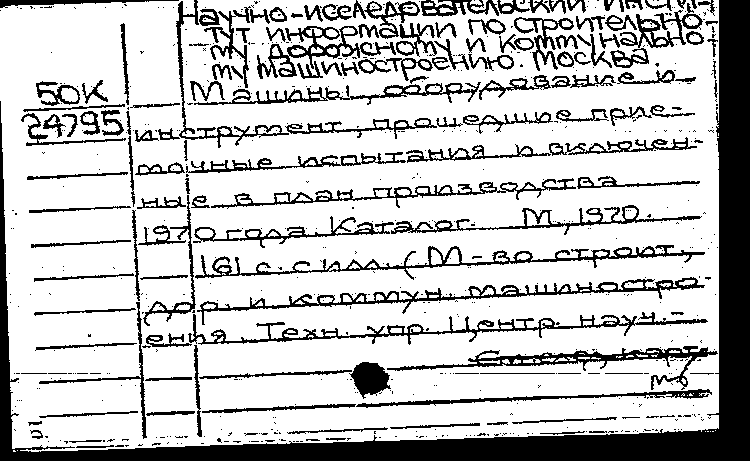 Научно-исследовательский инсти-
тут информации по строительно-
му, дорожному и коммунально-
му машиностроению. Москва.
50К
24795
Машины, оборудование и
инструмент, прошедшие прие-
мочные испытания и включен-
ные в план производства
1970 года. Каталог. М., 1970.
161 с. с илл. (М-во строит.,
дор. и коммун. машинострo-
ения. Техн. упр. Центр. науч.-
См. след. карт.